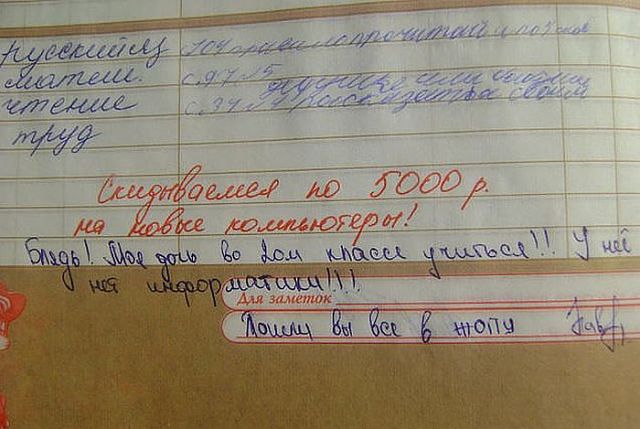 русский яз 104 правило прочитать и
матем. с. 97 №5
чтение с. 34 №4 рассказать о своём
труд
Скидываемся по 5000 р.
на новые компьютеры!
Блядь! Моя дочь во 2ом классе учиться!! У неё
нет информатики!!!
Для заметок
Пошли вы все в жопу